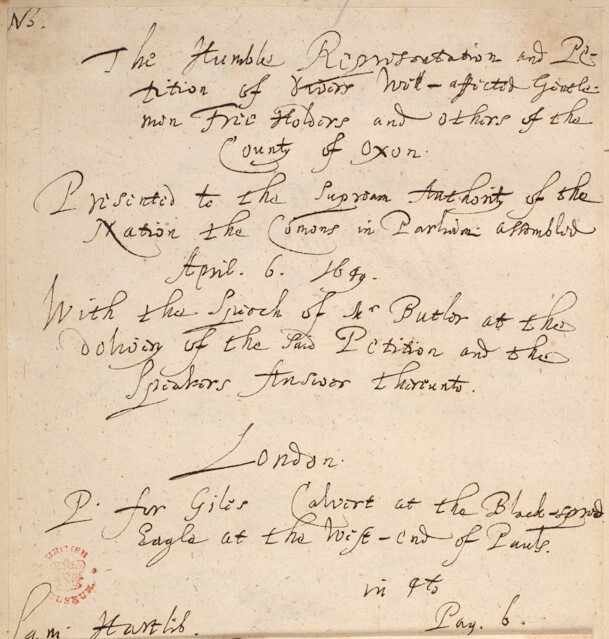 No.
The Humble Representation and Pe-
tition of divers Well-affected Gentle-
men Free Holders and others of the
County of Oxon.
Presented to the Supream Authority of the
Nation the Comons in Parliam: assembled
April. 6. 1649.
With the Speech of Mr Butler at the
delivery of the said Petition and the
Speakers Answer thereunto.
London.
P. for Giles Calvert at the Black-spred
Eagle at the West-end of Pauls.
in 4to
Sam. Hartlib. Pag. 6.
BRITISH MUSEUM